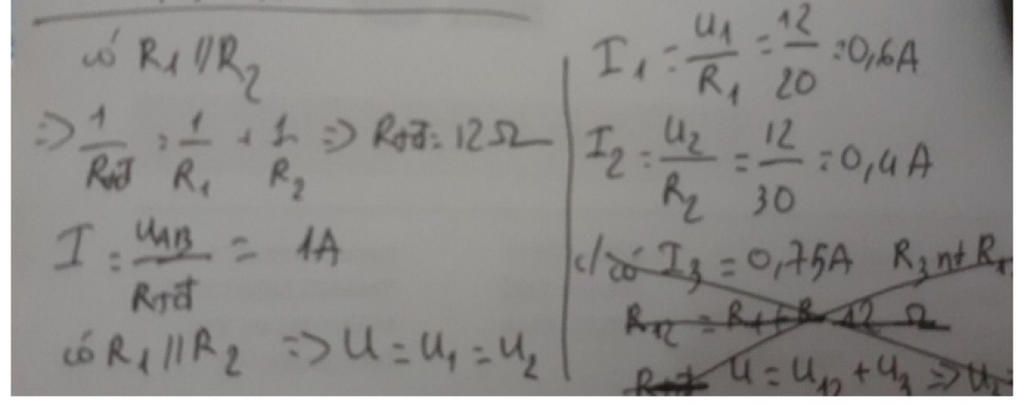 có R1 // R2
=> 1/Rtđ = 1/R1 + 1/R2 => Rtđ = 12Ω
I = UAB/Rtđ = 1A
có R1 // R2 => U = U1 = U2
I1 = U1/R1 = 12/20 = 0,6A
I2 = U2/R2 = 12/30 = 0,4A
c/ có I3 = 0,75A R3 nt R1
R12 = R1+R 12 Ω
Rtđ U = U12 + U3 =>